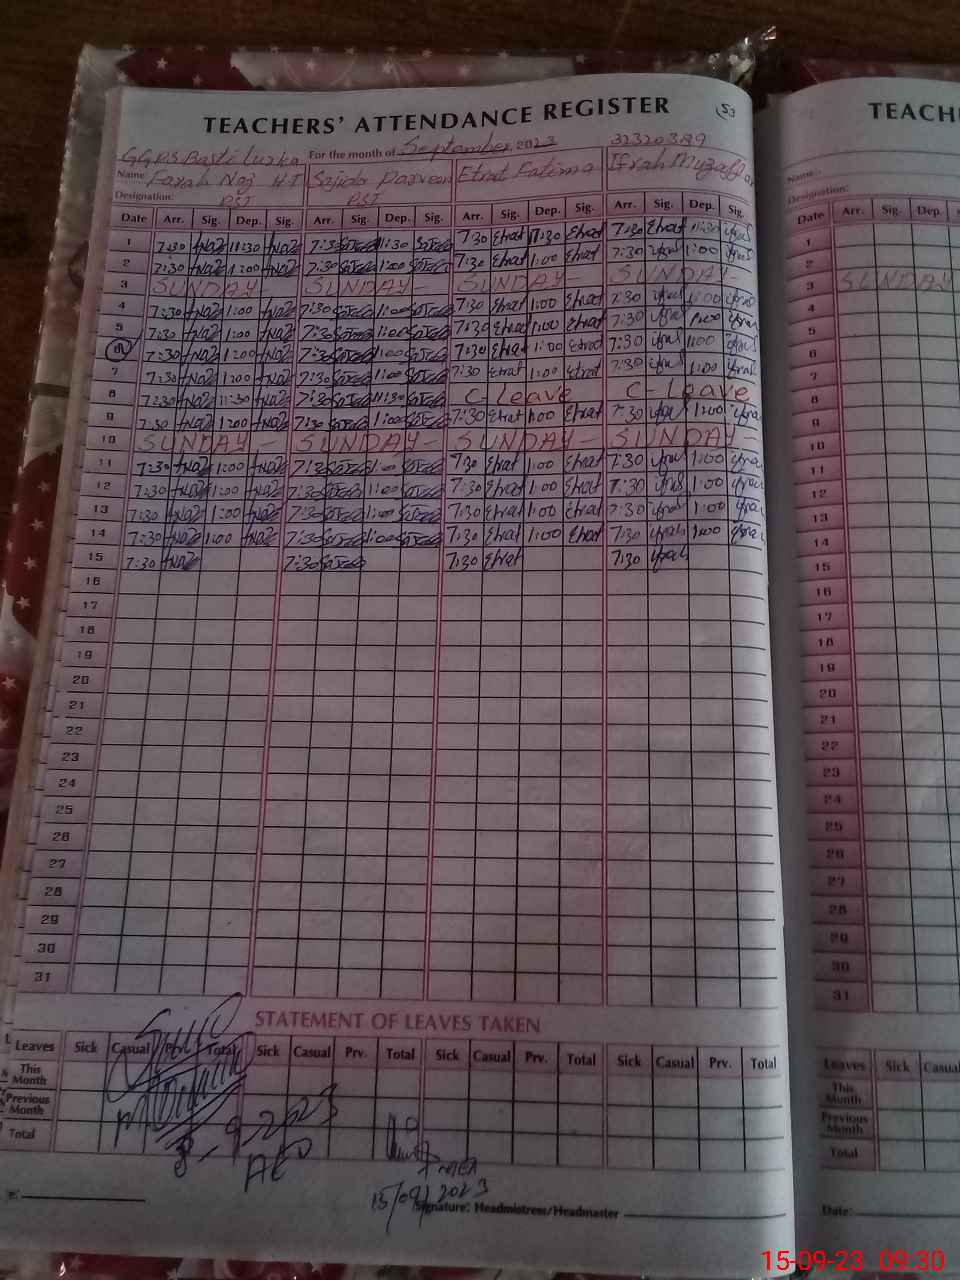 TEACHERS' ATTENDANCE REGISTER 53
GGPS Basti Lurka For the month of September 2023 32320389
Name: Farah Naz HT Sajida Parveen Etrat Fatima Ifrah Muzaffar
Designation: PST PST
Date Arr. Sig. Dep. Sig. Arr. Sig. Dep. Sig. Arr. Sig. Dep. Sig. Arr. Sig. Dep. Sig.
1 7:30 Naz 11:30 Naz 7:30 11:30 7:30 Etrat 11:30 Etrat 7:30 Etrat 11:30
2 7:30 Naz 1:00 Naz 7:30 1:00 7:30 Etrat 1:00 Etrat 7:30 1:00
3 SUNDAY - SUNDAY - SUNDAY - SUNDAY -
4 7:30 Naz 1:00 Naz 7:30 1:00 7:30 Etrat 1:00 Etrat 7:30 1:00
5 7:30 Naz 1:00 Naz 7:30 1:00 7:30 Etrat 1:00 Etrat 7:30 1:00
6 7:30 Naz 1:00 Naz 7:30 1:00 7:30 Etrat 1:00 Etrat 7:30 1:00
7 7:30 Naz 1:00 Naz 7:30 1:00 7:30 Etrat 1:00 Etrat 7:30 1:00
8 7:30 Naz 11:30 Naz 7:30 11:30 C- Leave C- Leave
9 7:30 Naz 1:00 Naz 7:30 1:00 7:30 Etrat 1:00 Etrat 7:30 1:00
10 SUNDAY - SUNDAY - SUNDAY - SUNDAY -
11 7:30 Naz 1:00 Naz 7:30 1:00 7:30 Etrat 1:00 Etrat 7:30 1:00
12 7:30 Naz 1:00 Naz 7:30 1:00 7:30 Etrat 1:00 Etrat 7:30 1:00
13 7:30 Naz 1:00 Naz 7:30 1:00 7:30 Etrat 1:00 Etrat 7:30 1:00
14 7:30 Naz 1:00 Naz 7:30 1:00 7:30 Etrat 1:00 Etrat 7:30 1:00
15 7:30 Naz 7:30 7:30 Etrat 7:30
16
17
18
19
20
21
22
23
24
25
26
27
28
29
30
31
STATEMENT OF LEAVES TAKEN
Leaves Sick Casual Prv. Total Sick Casual Prv. Total Sick Casual Prv. Total Sick Casual Prv. Total
This Month
Previous Month
Total
8-9-2023
AEO
MEA
15/09/2023
Signature: Headmistress/Headmaster
TEACH
Name:
Designation:
Date Arr. Sig. Dep.
1
2
3 SUNDAY
4
5
6
7
8
9
10
11
12
13
14
15
16
17
18
19
20
21
22
23
24
25
26
27
28
29
30
31
Leaves Sick Casual
This Month
Previous Month
Total
Date:
15-09-23 09:30